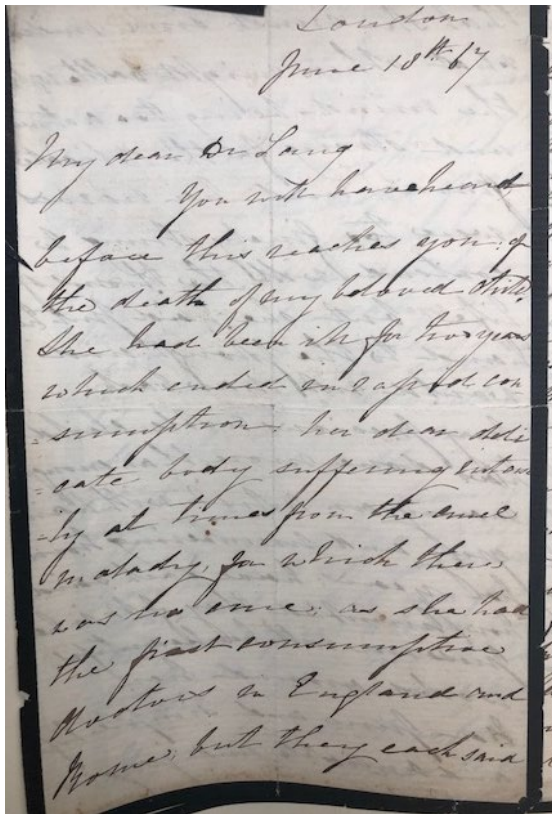 London
June 18th 67
My dear Dr Lang
You will have heard
before this reaches you, of
the death of my beloved child,
She had been ill for two years
which ended in rapid con
=sumption. her dear deli
=cate body suffering
=ly at times from the cruel
malady, for which there
was no cure, as she had
the first consumptive
doctors in England and
Rome, but they each said